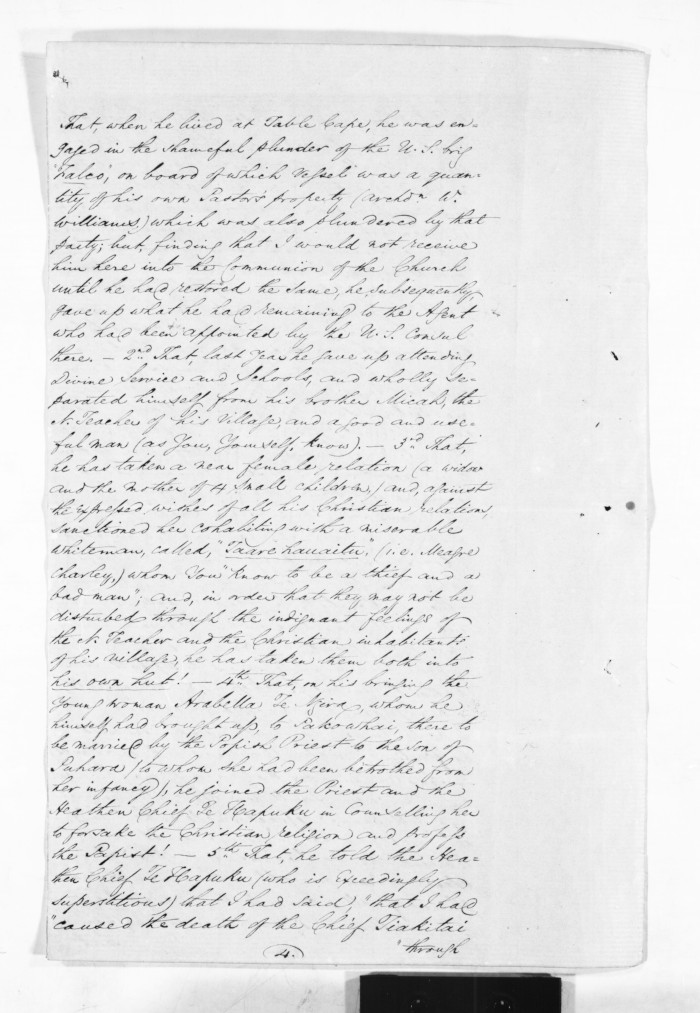 That, when he lived at Table Cape, he was en-
gaged in the shameful plunder of the U. S. brig
"Falco", on board of which vessel was a quan-
tity of his own Pastor's property (Archdn. W.
Williams,) which was also plundered by that
party; but, finding that I would not receive
him here into the Communion of the Church
until he had restored the same, he, subsequently,
gave up what he had remaining to the Agent
who had been appointed by the U. S. Consul
there. — 2nd. That, last year he gave up attending
Divine Service and Schools, and wholly se-
parated himself from his brother Micah, the
N. Teacher of his Village, and a good and use-
ful man (as You, Yourself, know). — 3rd. That,
he has taken a near female relation (a widow
and the mother of 4 small children,) and, against
the expressed wishes of all his Christian relations,
sanctioned her cohabiting with a miserable
whiteman, called, "Taare hauaitu," (i.e. Meagre
Charley,) whom You "know to be a thief and a
bad man"; and, in order that they may not be
disturbed through the indignant feelings of
the N. Teacher and the Christian inhabitants
of his village, he has taken them both into
his own hut! — 4th. That, on his bringing the
young woman Arabella Te Ngira, whom he
himself had brought up, to Pakowhai, there to
be married by the Papish Priest to the son of
Puhara (to whom she had been betrothed from
her infancy), he joined the Priest and the
Heathen Chief Te Hapuku in Counselling her
to forsake the Christian religion and profess
the Papist! — 5th. That, he told the Hea-
then Chief Te Hapuku (who is exceedingly
superstitious) that I had said, "that I had
"caused the death of the Chief Tiakitai
"through
4.